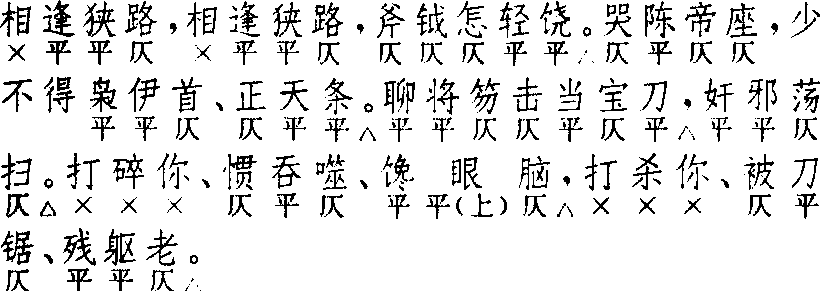 相逢狭路，相逢狭路，斧钺怎轻饶。哭陈帝座，少
× 平 平 仄 × 平 平 仄 仄 仄 仄 平 平 △ 仄 平 仄 仄
不得枭伊首、正天条。聊将笏击当宝刀，奸邪荡
平 平 仄 仄 平 平 △ 平 平 仄 仄 平 仄 平 △ 平 平 仄
扫。打碎你、惯吞噬、馋眼脑，打杀你、被刀
仄 △ × × × 仄 平 仄 平 平(上) 仄 △ × × × 仄 平
锯、残躯老。
仄 平 平 仄 △